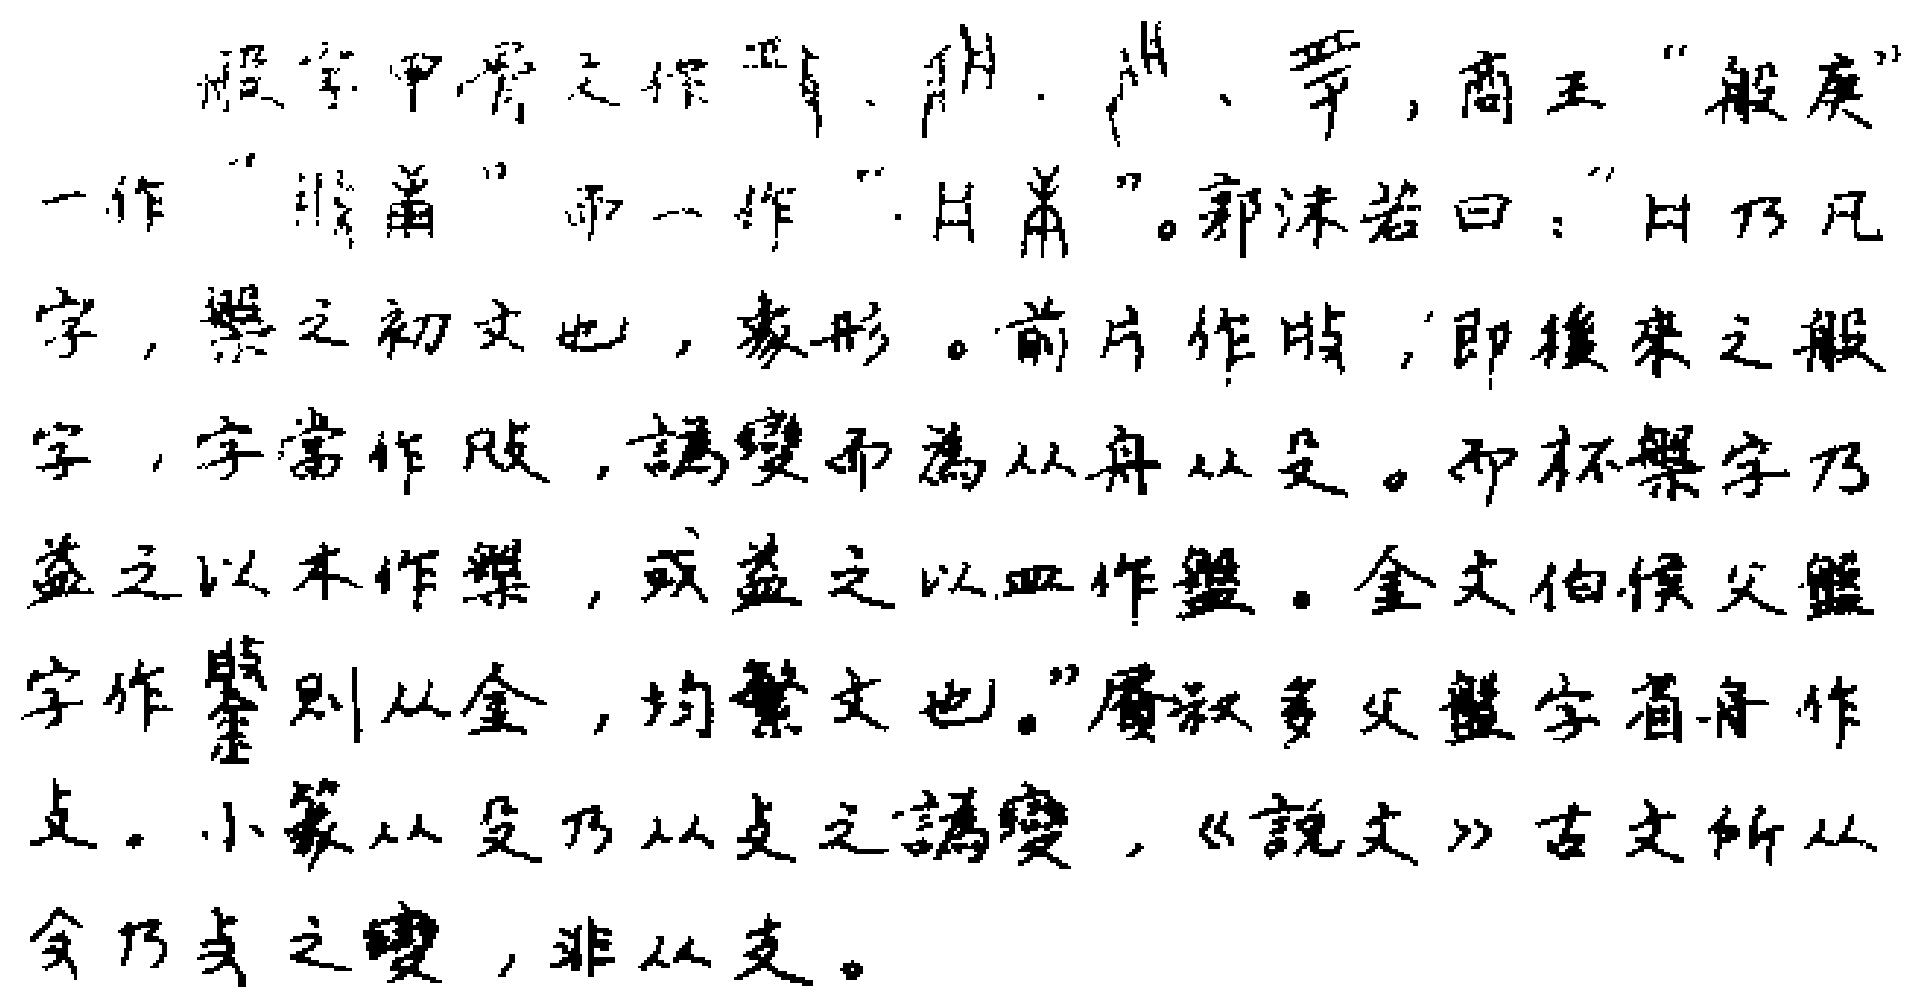 般字甲骨文作、、、,商王“般庚”
一作“”而一作“”。郭沫若曰:“乃凡
字,槃之初文也,象形。前片作,即後來之般
字,字當作𠘧攴,譌變而為从舟从殳。而杯槃字乃
益之以木作槃,或益之以皿作盤。金文伯侯父盤
字作鎜則从金,均繁文也。”叔多父盤字省舟作
攴。小篆从殳乃从攴之譌變,《説文》古文所从
乃攴之變,非从支。